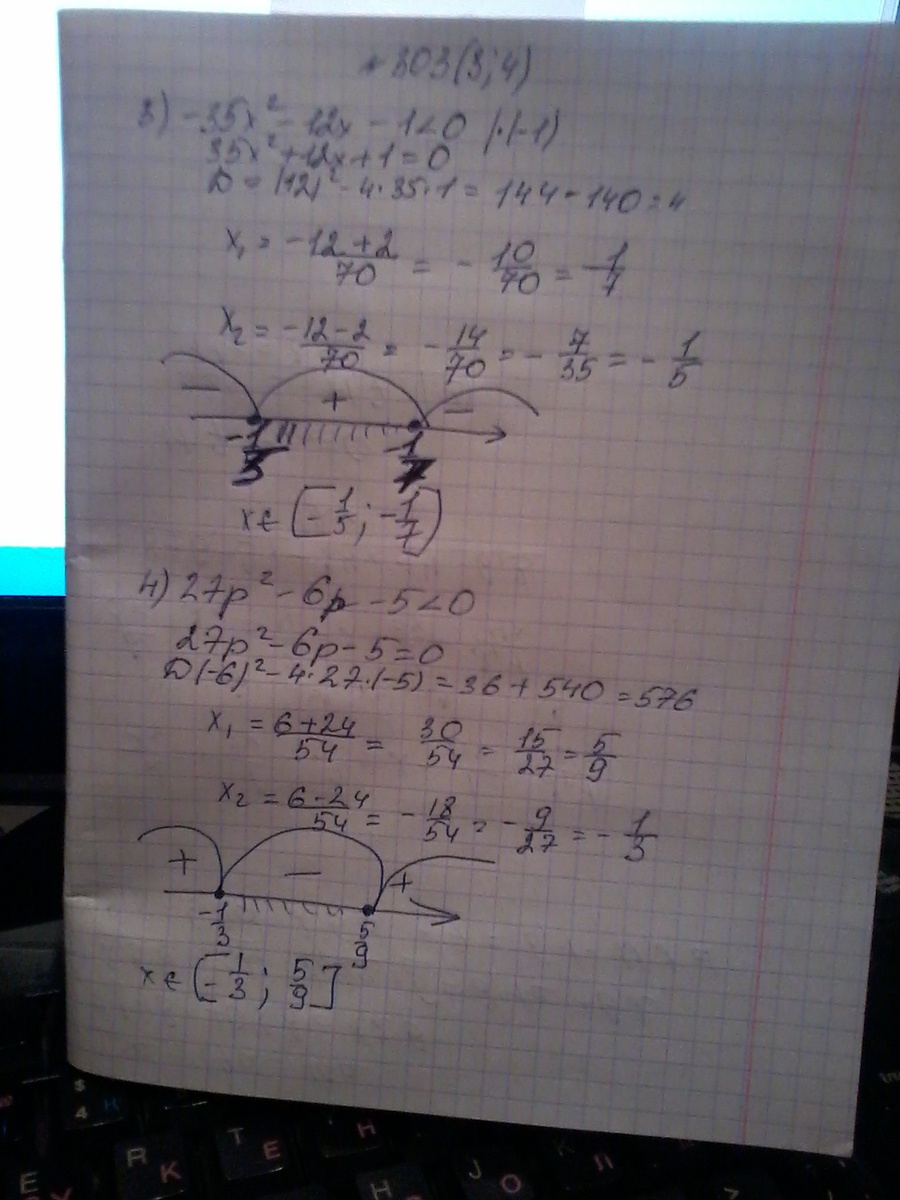 № 303(3;4)
3) -35x² - 12x - 1 < 0 |·(-1)
35x² + 12x + 1 = 0
D = (12)² - 4·35·1 = 144 - 140 = 4
x₁ = -12+2/70 = -10/70 = -1/7
x₂ = -12-2/70 = -14/70 = -7/35 = -1/5
- + -
-1/5 -1/7
x ∈ [-1/5; -1/7]
4) 27p² - 6p - 5 < 0
27p² - 6p - 5 = 0
D(-6)² - 4·27·(-5) = 36 + 540 = 576
x₁ = 6+24/54 = 30/54 = 15/27 = 5/9
x₂ = 6-24/54 = -18/54 = -9/27 = -1/3
+ - +
-1/3 5/9
x ∈ [-1/3; 5/9]
$
4 Н
R К
T Е
Н
E
H
J О
Л